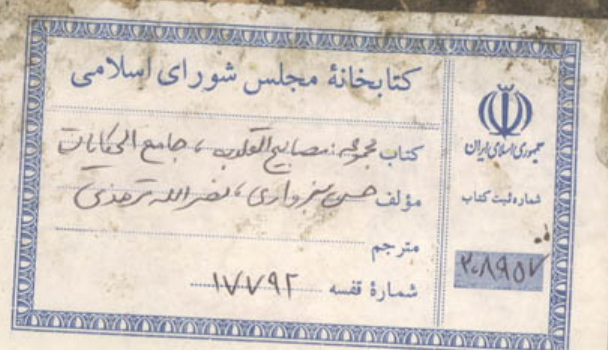 کتابخانهٔ مجلس شورای اسلامی
کتاب مجموعه: مصابیح القلوب ، جامع الحکایات
مؤلف حسن سبزواری ، نصرالله ترمذی
مترجم
شمارهٔ قفسه ۱۷۷۹۲
جمهوری اسلامی ایران
شماره ثبت کتاب
۲۰۸۹۵۷